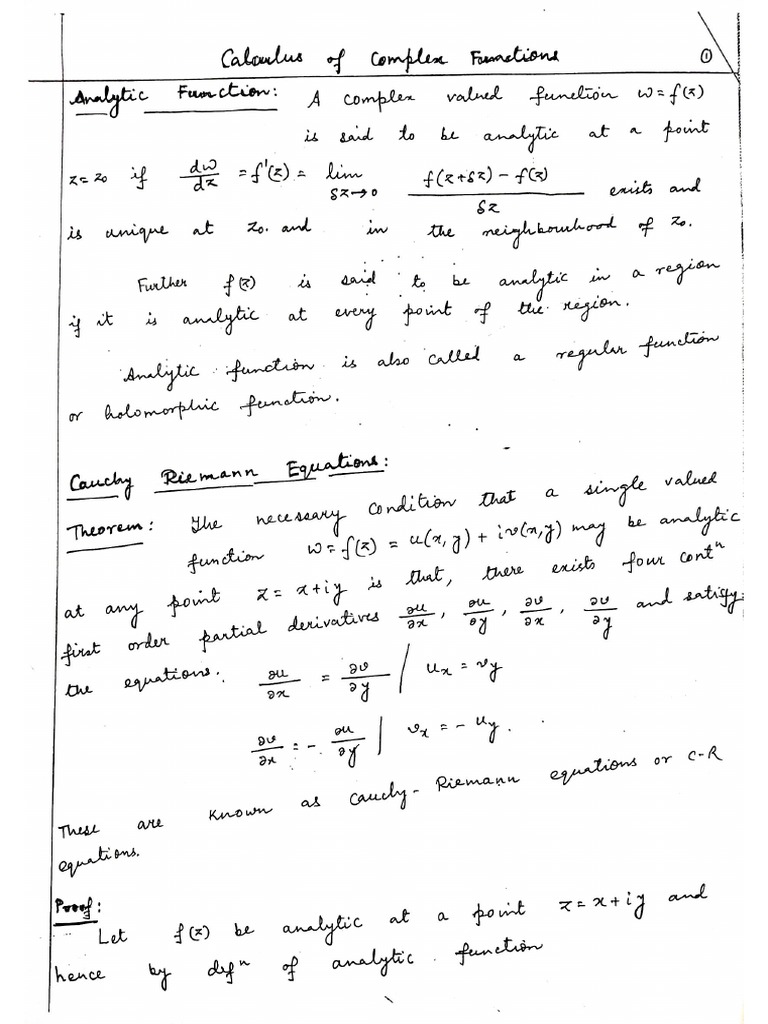 Calculus of Complex Functions ①
Analytic Function: A complex valued function w = f(z)
is said to be analytic at a point
z = z₀ if dw/dz = f'(z) = lim δz→0 (f(z+δz) − f(z))/δz exists and
is unique at z₀. and in the neighbourhood of z₀.
Further f(z) is said to be analytic in a region
if it is analytic at every point of the region.
Analytic function is also called a regular function
or holomorphic function.
Cauchy Riemann Equations:
Theorem: The necessary condition that a single valued
function w = f(z) = u(x,y) + iv(x,y) may be analytic
at any point z = x+iy is that, there exists four contⁿ
first order partial derivatives ∂u/∂x, ∂u/∂y, ∂v/∂x, ∂v/∂y and satisfy
the equations. ∂u/∂x = ∂v/∂y / uₓ = v_y
∂v/∂x = − ∂u/∂y | vₓ = − u_y.
These are known as Cauchy-Riemann equations or C-R
equations.
Proof:
Let f(z) be analytic at a point z = x + iy and
hence by defⁿ of analytic function